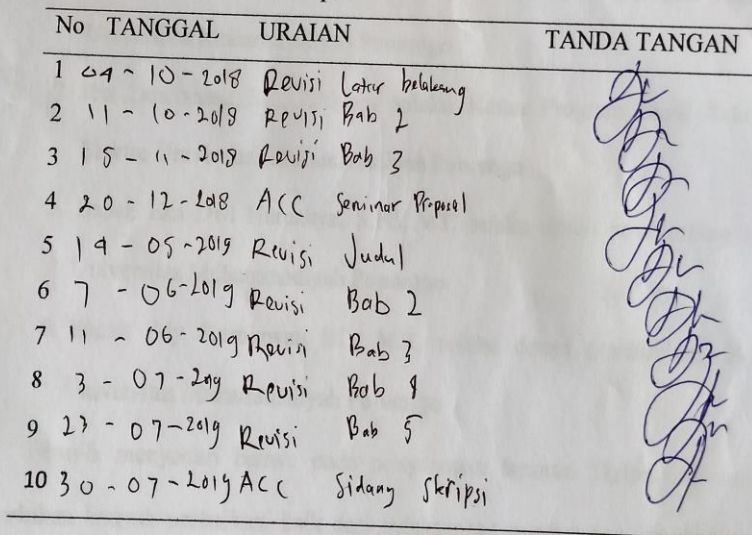 No TANGGAL URAIAN TANDA TANGAN
1 04 - 10 - 2018 Revisi Latar belakang
2 11 - 10 - 2018 Revisi Bab 2
3 15 - 11 - 2018 Revisi Bab 3
4 20 - 12 - 2018 ACC Seminar Proposal
5 14 - 05 - 2019 Revisi Judul
6 7 - 06 - 2019 Revisi Bab 2
7 11 - 06 - 2019 Revisi Bab 3
8 3 - 07 - 2019 Revisi Bab 4
9 23 - 07 - 2019 Revisi Bab 5
10 30 - 07 - 2019 ACC Sidang Skripsi